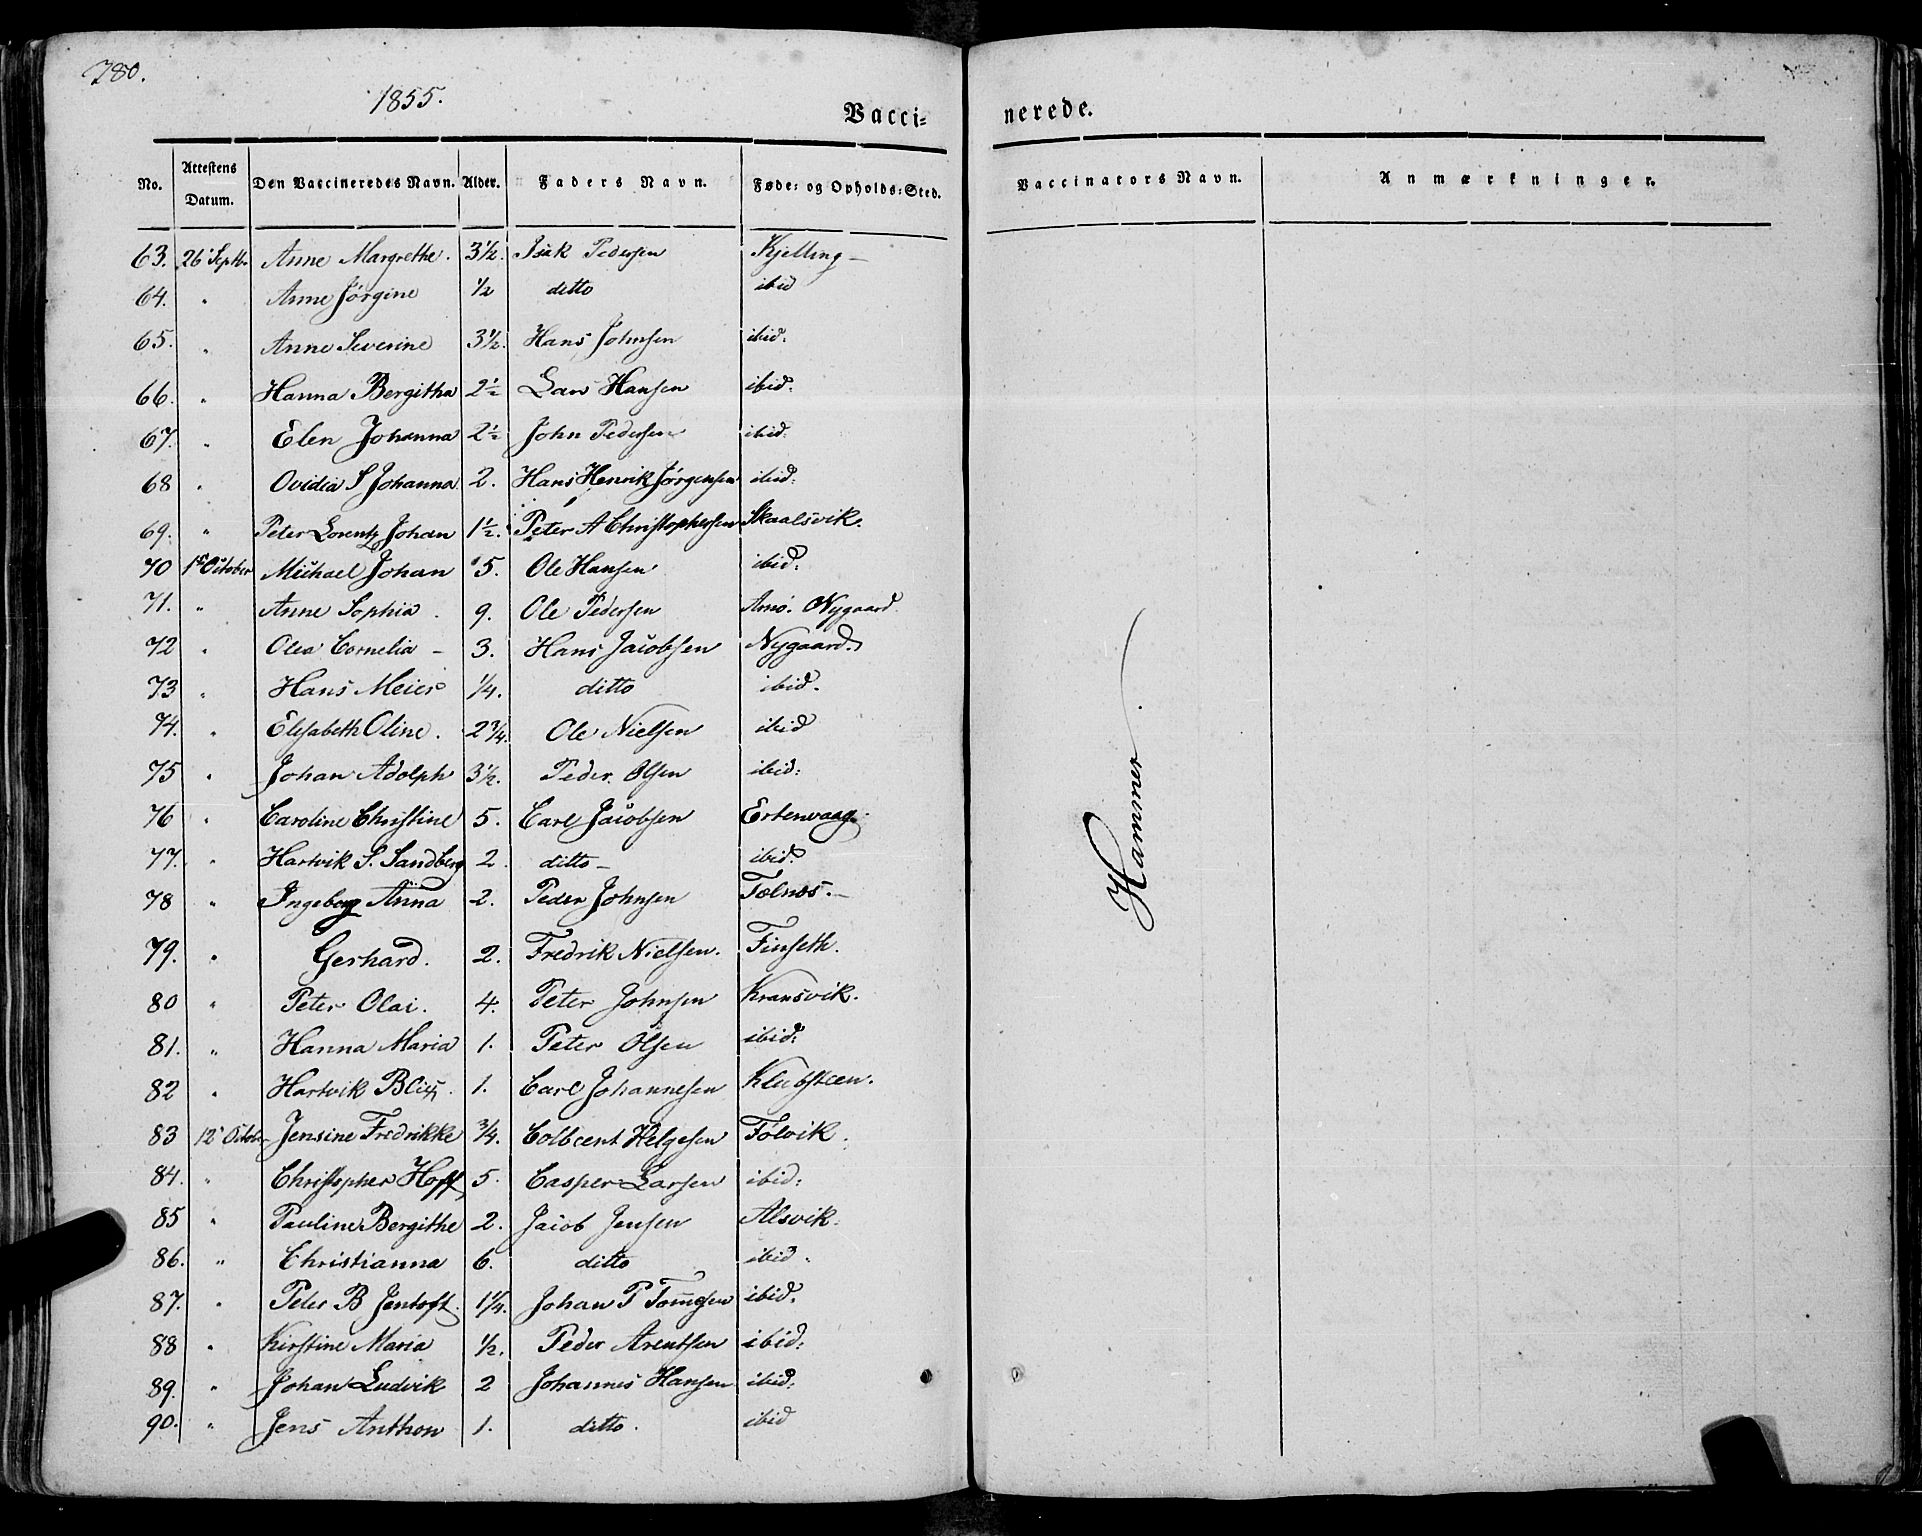 780.
1855.
Vacci=
nerede.
No. Attestens Datum. Den Vaccineredes Navn. Alder. Faders Navn. Føde= og Opholds=Sted. Vaccinators Navn. Anmærkninger.
63. 26 Septb. Anne Margrethe. 3½. Isak Pedersen Kjelling –
64. " Anne Jørgine ½ ditto ibid
65. " Anne Severine 3½. Hans Johnsen ibid.
66. " Hanna Bergitha 2½ Lars Hansen ibid.
67. " Elen Johanna 2½ John Pedersen ibid.
68 " Ovidia S Johanna 2. Hans Henrik Jørgensen ibid:
69. " Peter Lorentz Johan 1½. Peter A Christophersen Skaalsvik.
70 1st October Michael Johan 5. Ole Hansen ibid.
71. " Anne Sophia. 9. Ole Pedersen Arnö. Nygaard.
72 " Olea Cornelia – 3. Hans Jacobsen Nygaard.
73 " Hans Meier ¼. ditto ibid.
74. " Elisabeth Oline. 2¾. Ole Nielsen ibid
75 " Johan Adolph 3½. Peder Olsen ibid:
76 " Caroline Christine 5. Carl Jacobsen Ertenvaag.
77. " Hartvik S. Sandberg 2. ditto – ibid.
78 " Ingeborg Anna 2. Peder Johnsen Tælnes. –
79. " Gerhard. 2. Fredrik Nielsen. Finseth.
80 " Peter Olai. 4. Peter Johnsen Kransvik.
81. " Hanna Maria 1. Peter Olsen ibid:
82 " Hartvik Blix. 1. Carl Johannesen Klubsteen.
83 12 October Jensine Fredrikke ¾. Colbent Helgesen Følvik.
84. " Christopher Hoff 5. Casper Larsen ibid:
85 " Pauline Bergithe 2. Jacob Jensen Alsvik.
86. " Christianna 6. ditto ibid.
87. " Peter B Jentoft. 1¼. Johan P ibid.
88 " Kirstine Maria ½. Peder Arentsen ibid:
89. " Johan Ludvik 2 Johannes Hansen ibid:
90. " Jens Anthon 1. ditto. ibid
Hammer.